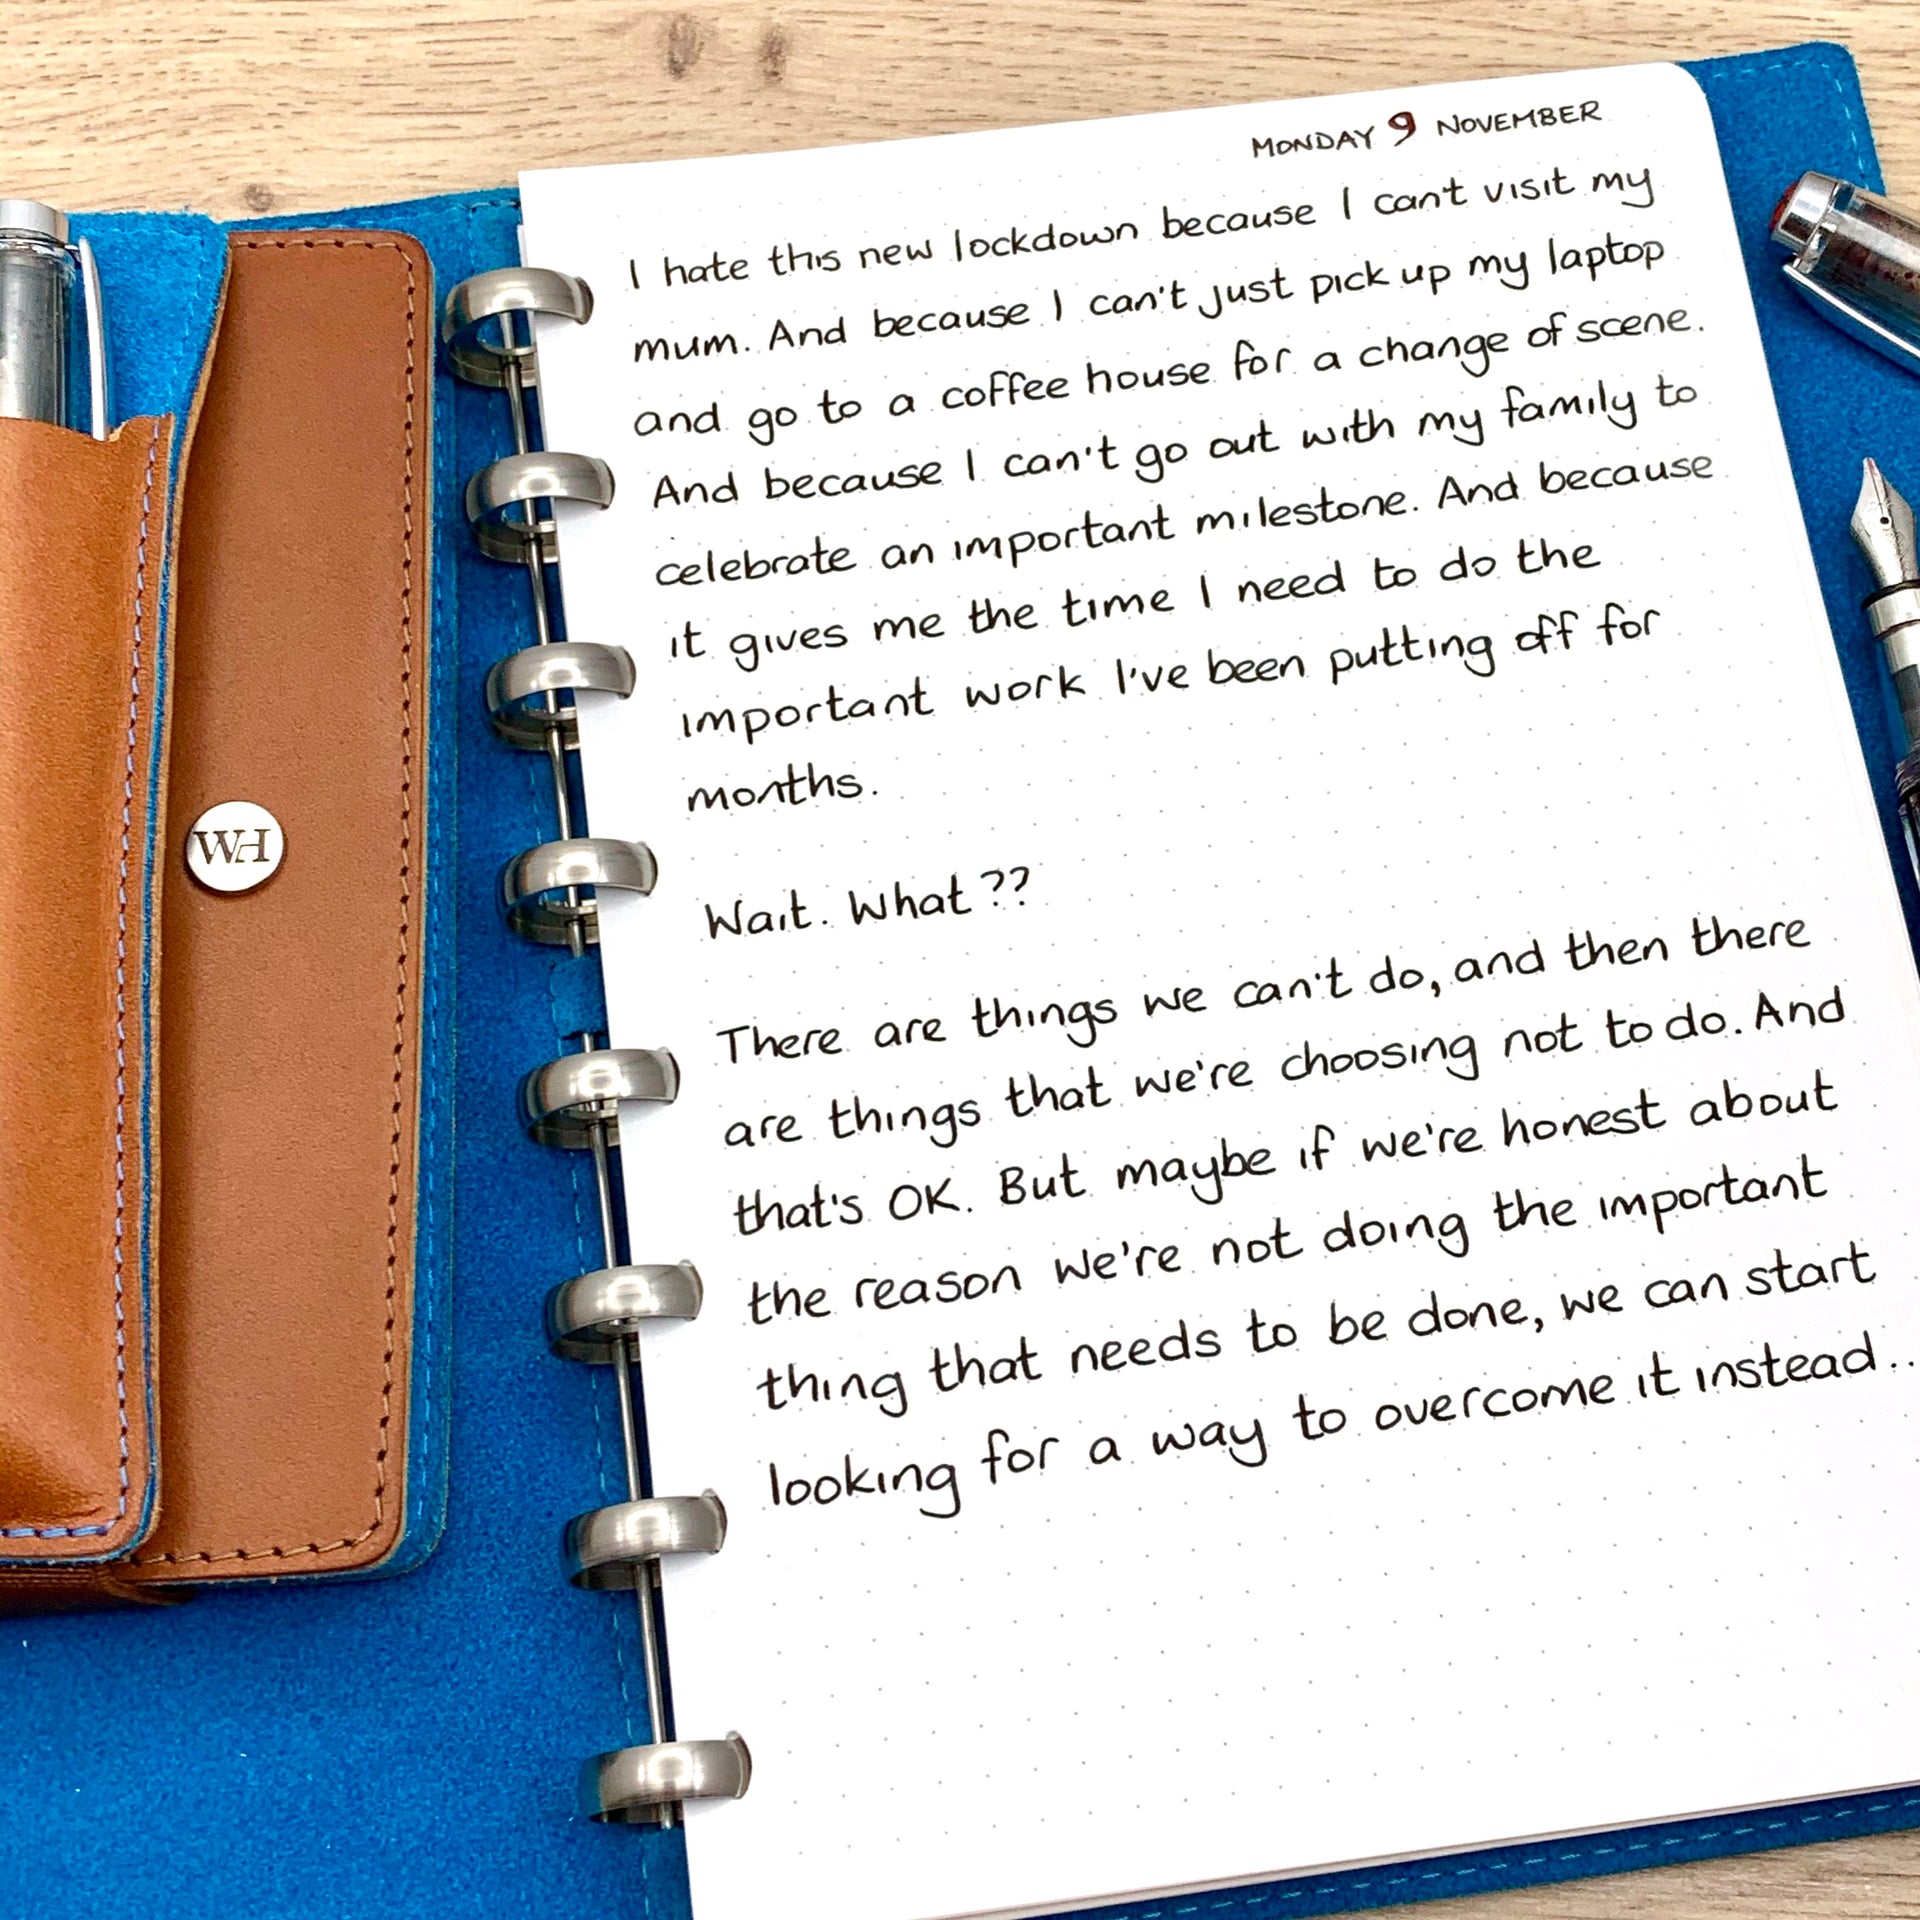 MONDAY 9 NOVEMBER
I hate this new lockdown because I can't visit my
mum. And because I can't just pick up my laptop
and go to a coffee house for a change of scene.
And because I can't go out with my family to
celebrate an important milestone. And because
it gives me the time I need to do the
important work I've been putting off for
months.
Wait. What??
There are things we can't do, and then there
are things that we're choosing not to do. And
that's OK. But maybe if we're honest about
the reason we're not doing the important
thing that needs to be done, we can start
looking for a way to overcome it instead..
WH